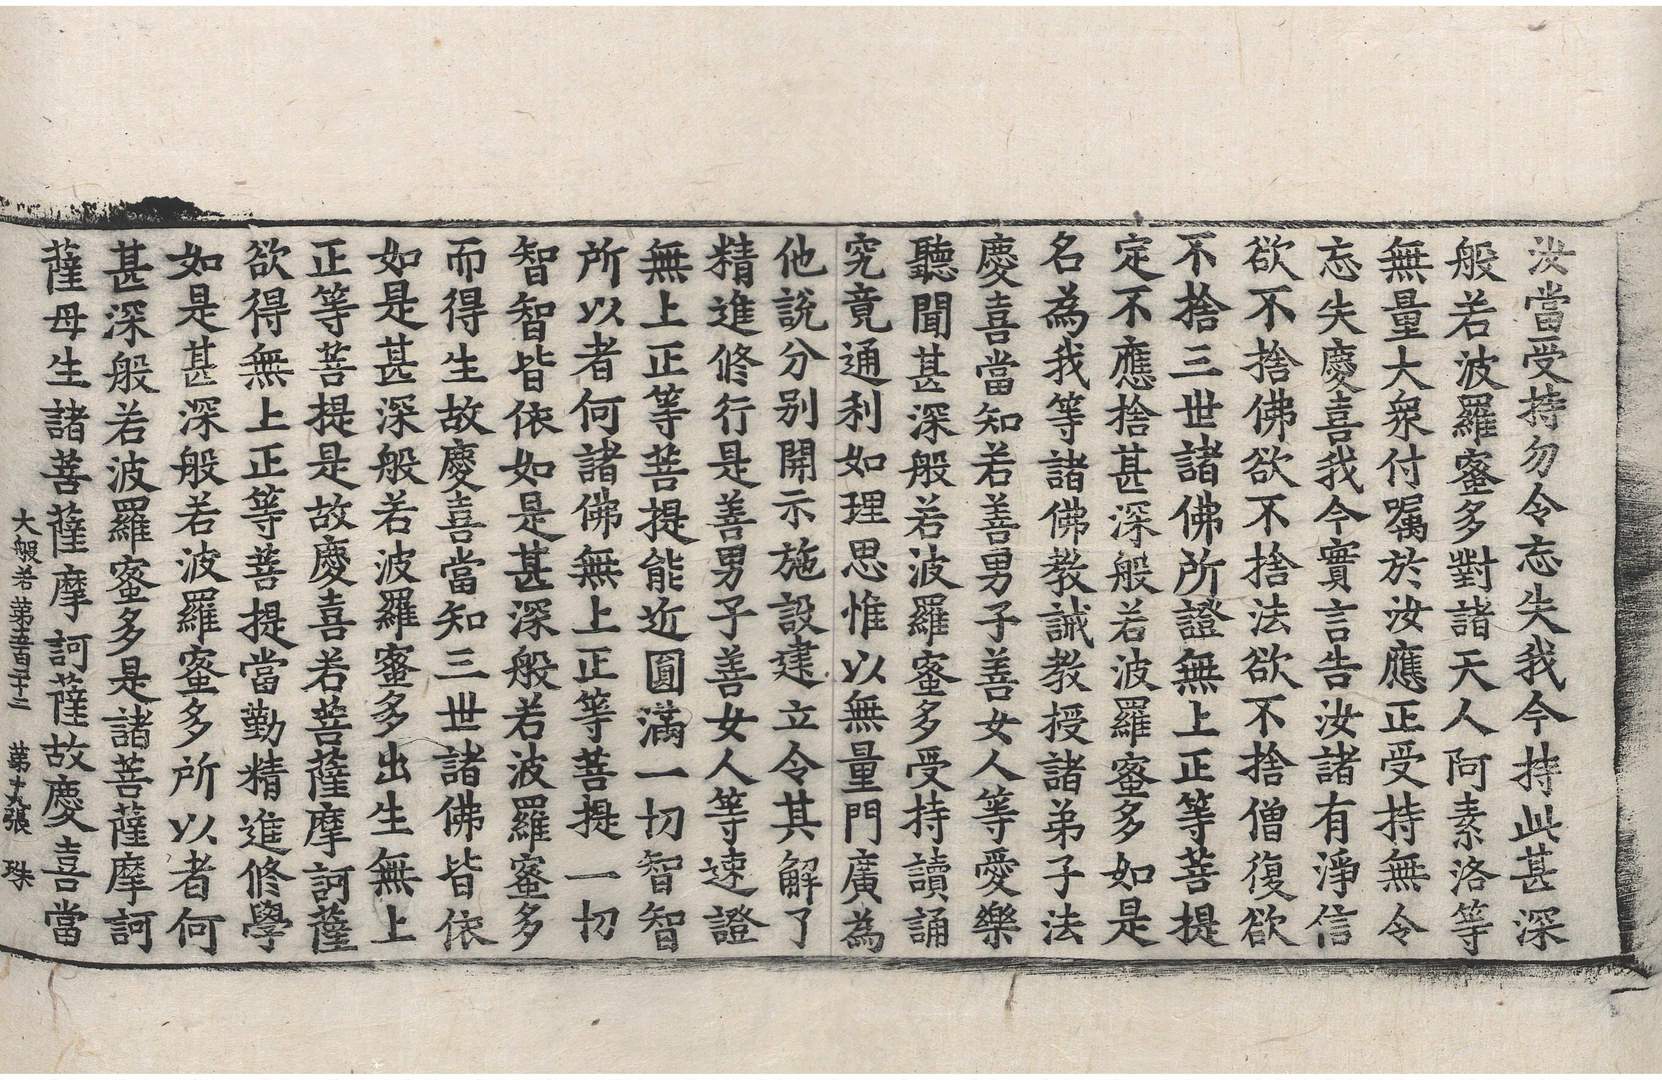 汝當受持勿令忘失我今持此甚深
般若波羅蜜多對諸天人阿素洛等
無量大衆付囑於汝應正受持無令
忘失慶喜我今實言告汝諸有淨信
欲不捨佛欲不捨法欲不捨僧復欲
不捨三世諸佛所證無上正等菩提
定不應捨甚深般若波羅蜜多如是
名為我等諸佛教誡教授諸弟子法
慶喜當知若善男子善女人等愛樂
聽聞甚深般若波羅蜜多受持讀誦
究竟通利如理思惟以無量門廣為
他說分別開示施設建立令其解了
精進修行是善男子善女人等速證
無上正等菩提能近圓滿一切智智
所以者何諸佛無上正等菩提一切
智智皆依如是甚深般若波羅蜜多
而得生故慶喜當知三世諸佛皆依
如是甚深般若波羅蜜多出生無上
正等菩提是故慶喜若菩薩摩訶薩
欲得無上正等菩提當勤精進修學
如是甚深般若波羅蜜多所以者何
甚深般若波羅蜜多是諸菩薩摩訶
薩母生諸菩薩摩訶薩故慶喜當
大般若第五百二十三 第十九張 珠